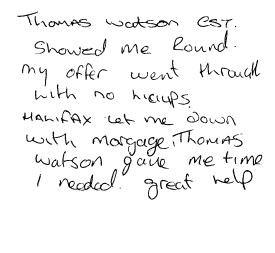 Thomas Watson EST.
Showed me Round.
my offer went through
with no hicups.
HALIFAX Let me down
with morgage, Thomas
Watson gave me time
I needed. great help